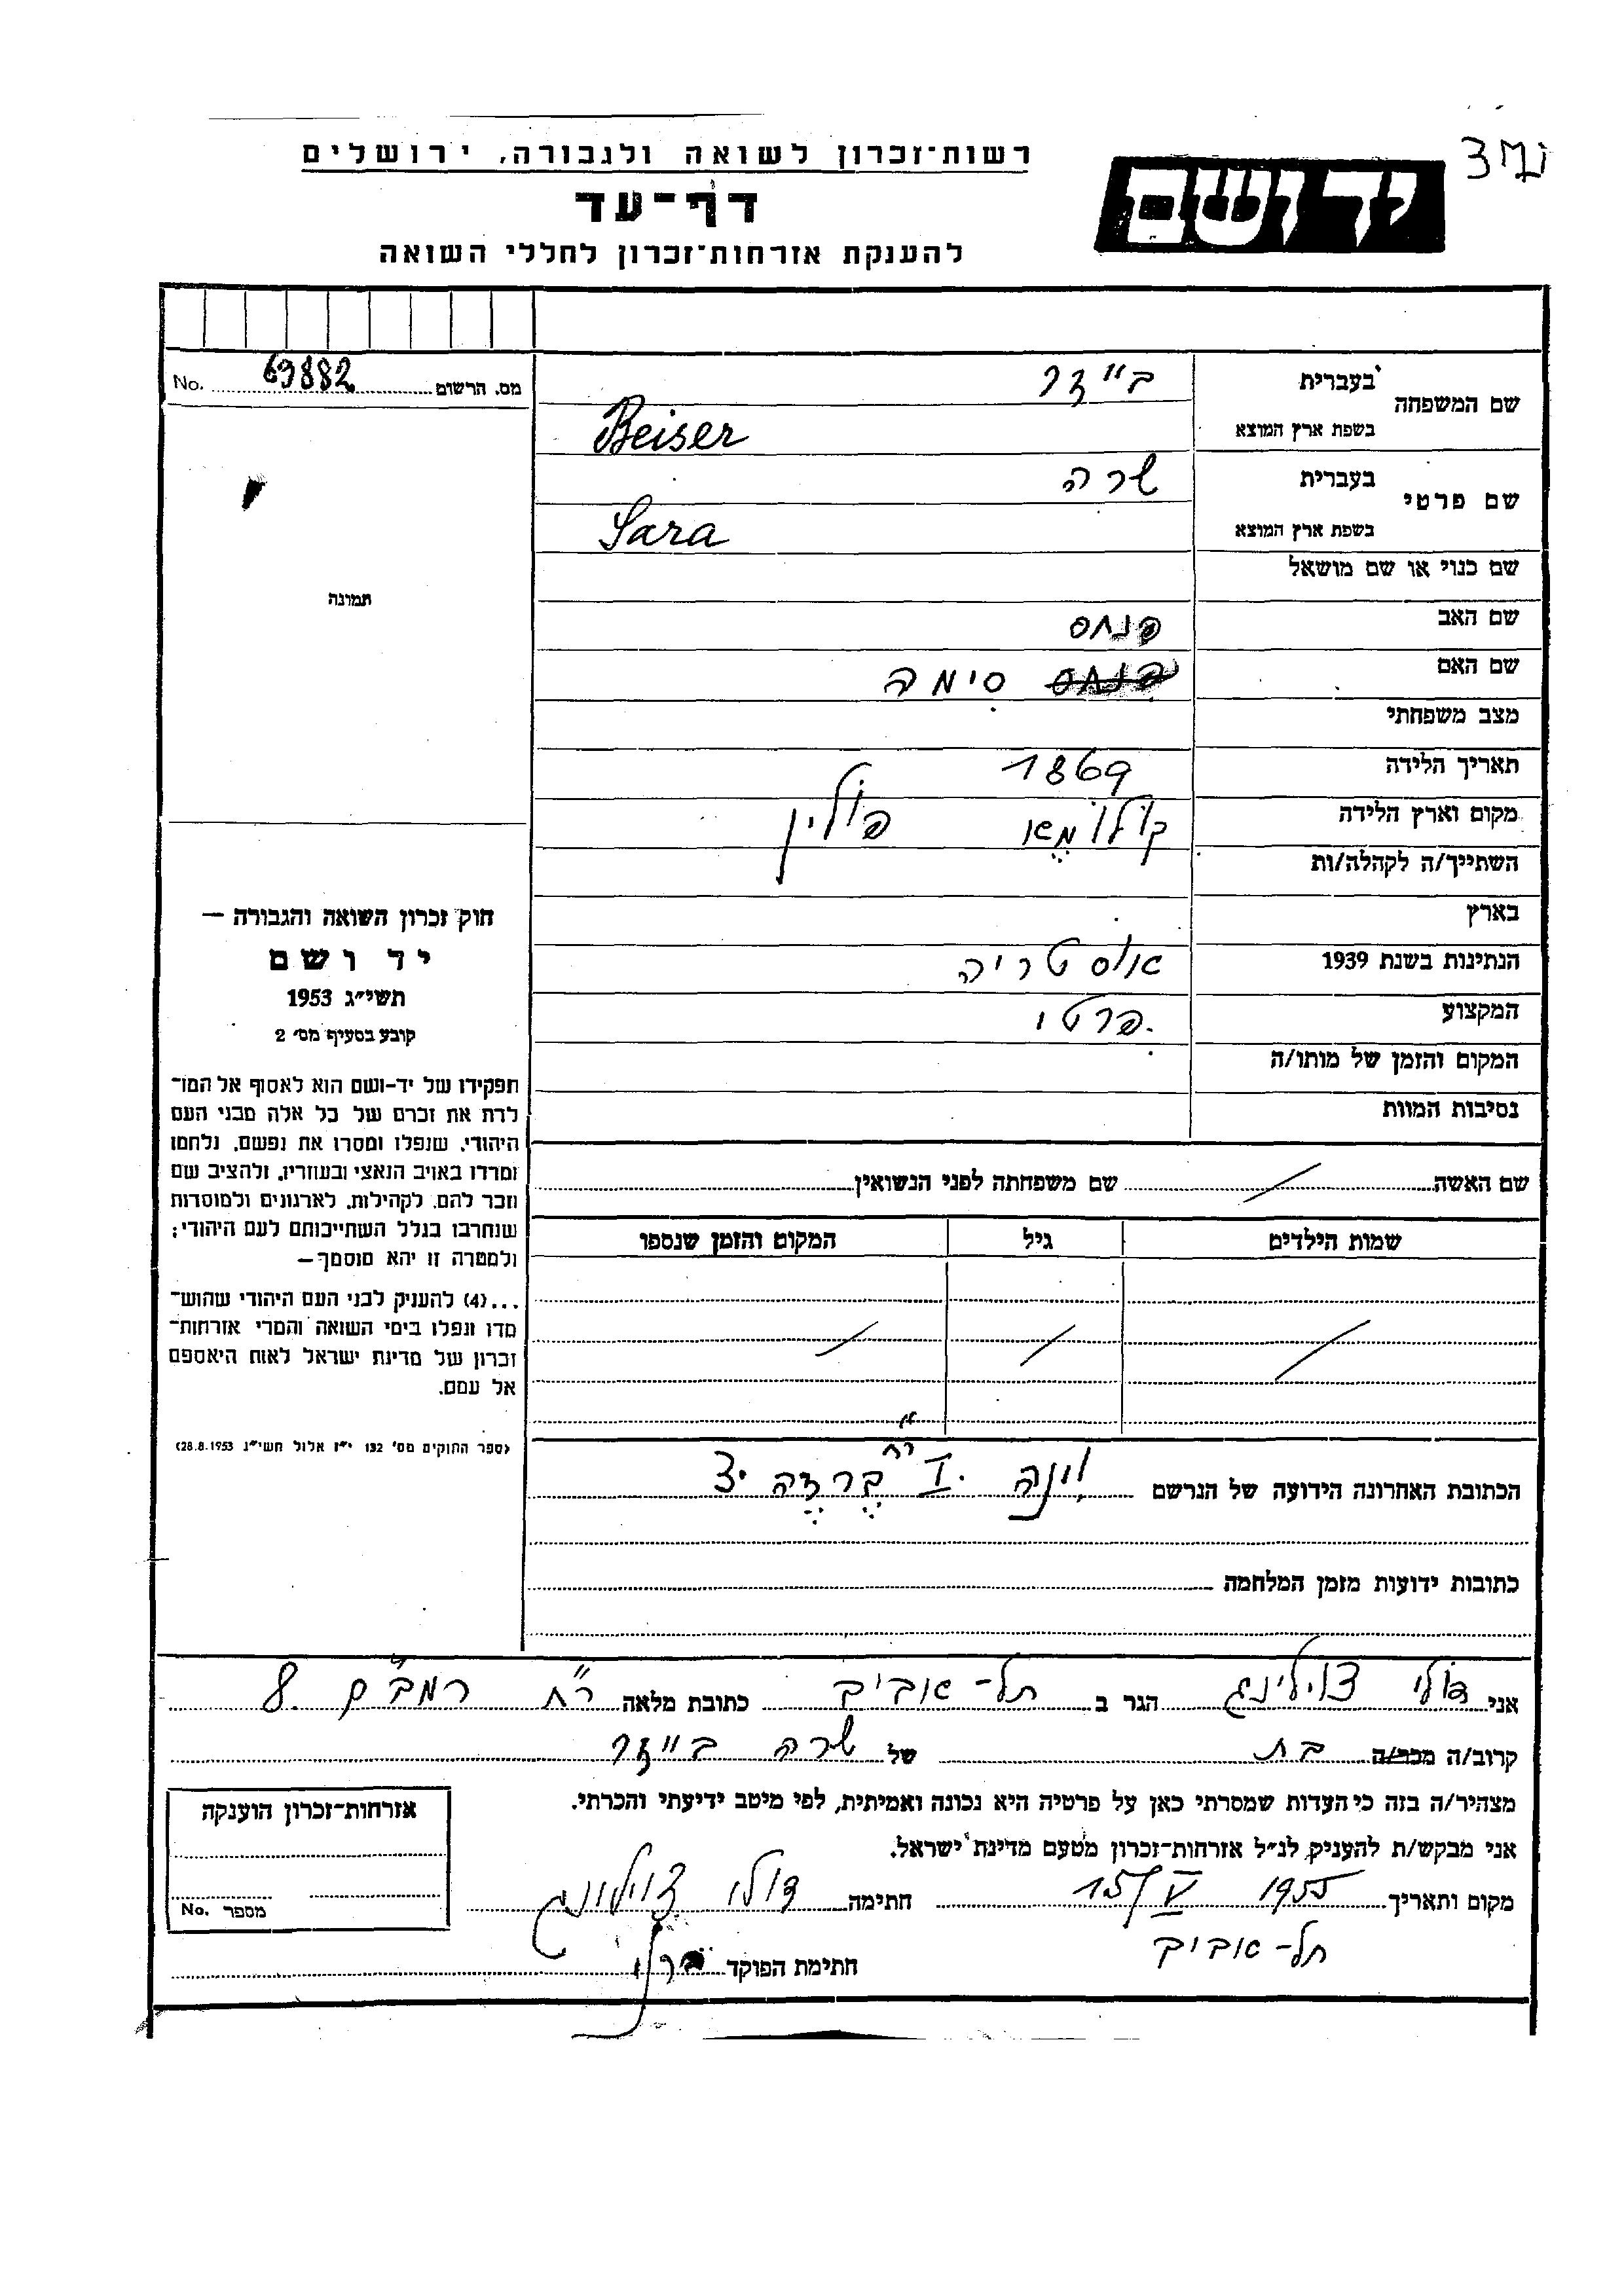 רשות־זכרון לשואה ולגבורה, ירושלים
דף־עד
להענקת אזרחות־זכרון לחללי השואה
יד ושם
מס. הרשום 69882 No.
שם המשפחה
בעברית בייזר
בשפת ארץ המוצא Beiser
שם פרטי
בעברית שרה
בשפת ארץ המוצא Sara
שם כנוי או שם מושאל
שם האב פנחס
שם האם פנחס סימה
מצב משפחתי
תאריך הלידה 1869
מקום וארץ הלידה פולין
השתייך/ה לקהלה/ות
בארץ
הנתינות בשנת 1939 אוסטריה
המקצוע פרטי
המקום והזמן של מותו/ה
נסיבות המוות
תמונה
חוק זכרון השואה והגבורה —
יד ושם
תשי״ג 1953
קובע בסעיף מס׳ 2
תפקידו של יד-ושם הוא לאסוף אל המו־
לדת את זכרם של כל אלה מבני העם
היהודי, שנפלו ומסרו את נפשם, נלחמו
ומרדו באויב הנאצי ובעוזריו, ולהציב שם
וזכר להם, לקהילות, לארגונים ולמוסדות
שנחרבו בגלל השתייכותם לעם היהודי;
ולמטרה זו יהא מוסמך—
...(4) להעניק לבני העם היהודי שהוש־
מדו ונפלו בימי השואה והמרי אזרחות־
זכרון של מדינת ישראל לאות היאספם
אל עמם.
(ספר החוקים מס׳ 132 י״ז אלול תשי״ג 28.8.1953)
שם האשה / שם משפחתה לפני הנשואין
שמות הילדים גיל המקום והזמן שנספו
/ / /
הכתובת האחרונה הידועה של הנרשם וינה I
כתובות ידועות מזמן המלחמה
אני דולי צוילינג הגר ב תל-אביב כתובת מלאה רח׳ רמב״ם 8
קרוב/ה מכר/ה בת של שרה בייזר
מצהיר/ה בזה כי העדות שמסרתי כאן על פרטיה היא נכונה ואמיתית, לפי מיטב ידיעתי והכרתי.
אני מבקש/ת להעניק לנ״ל אזרחות־זכרון מטעם מדינת ישראל.
מקום ותאריך 1955 15/V חתימה דולי צוילינג
תל-אביב
חתימת הפוקד
אזרחות־זכרון הוענקה
מספר No.